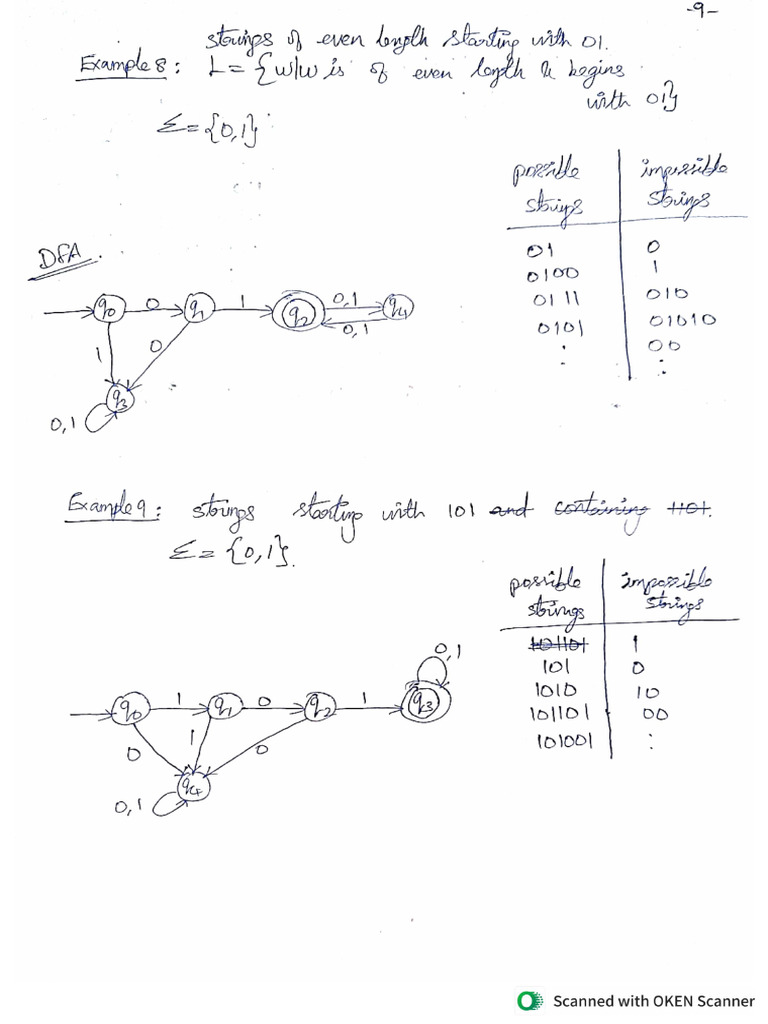 -9-
strings of even length starting with 01.
Example 8: L = {w/w is of even length & begins
with 01}
Σ = {0,1}
possible strings | impossible strings
01 | 0
0100 | 1
0111 | 010
0101 | 01010
⋮ | 00
⋮
DFA.
q0 0 q1 1 q2 0,1 q4
0,1
1 0
q3
0,1
Example 9: strings starting with 101 and containing 1101.
Σ = {0,1}.
possible strings | impossible strings
101101 | 1
101 | 0
1010 | 10
101101 | 00
101001 | ⋮
0,1
q0 1 q1 0 q2 1 q3
0 1 0
q4
0,1
Scanned with OKEN Scanner